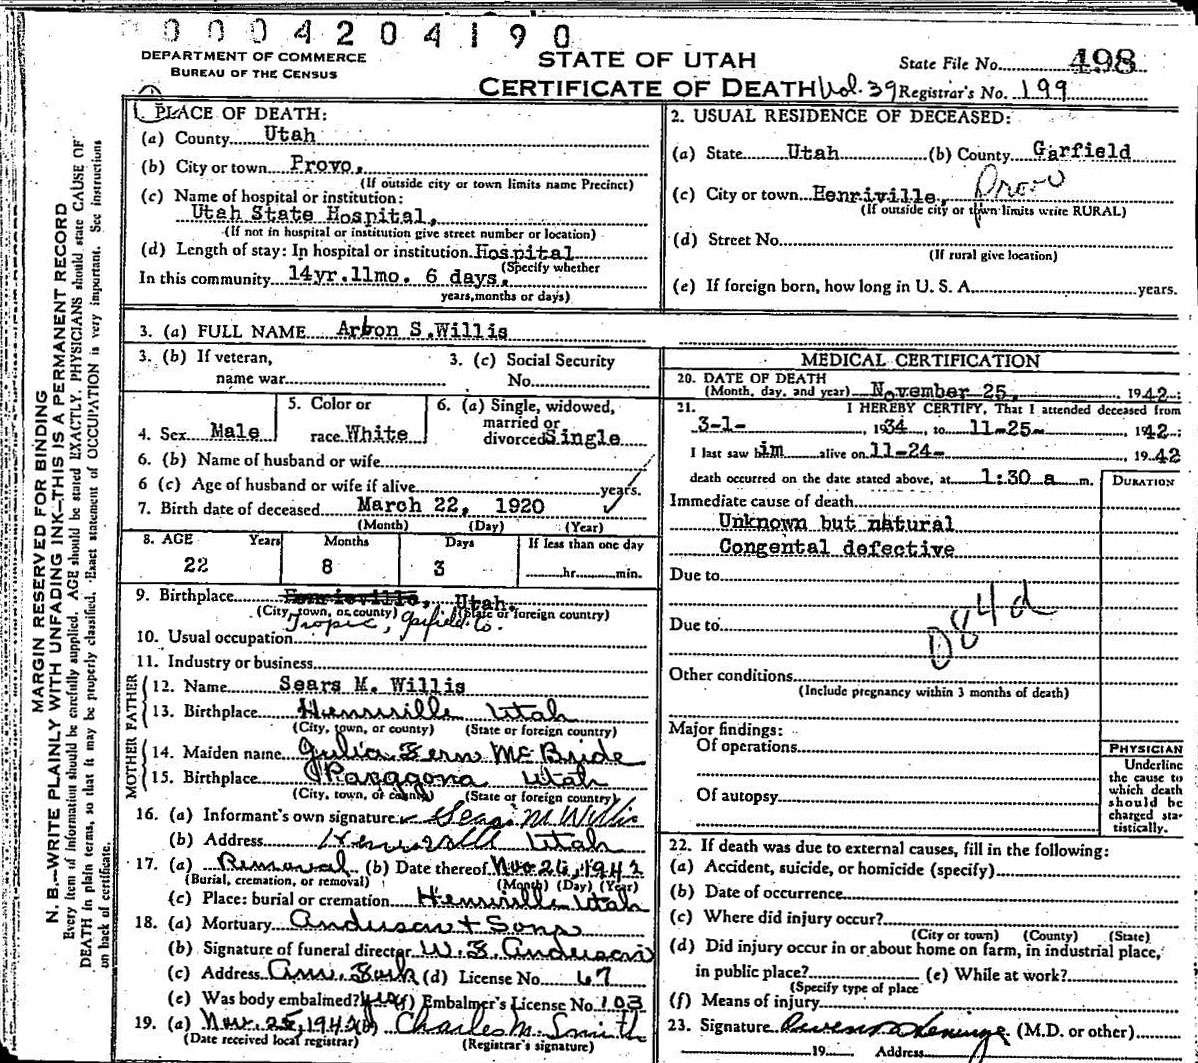 0004204190
DEPARTMENT OF COMMERCE
BUREAU OF THE CENSUS
STATE OF UTAH
CERTIFICATE OF DEATH Vol. 39
State File No. 498
Registrar's No. 199
MARGIN RESERVED FOR BINDING
N. B.—WRITE PLAINLY WITH UNFADING INK—THIS IS A PERMANENT RECORD
Every item of information should be carefully supplied. AGE should be stated EXACTLY. PHYSICIANS should state CAUSE OF
DEATH in plain terms, so that it may be properly classified. Exact statement of OCCUPATION is very important. See instructions
on back of certificate.
1 PLACE OF DEATH:
(a) County Utah
(b) City or town Provo,
(If outside city or town limits name Precinct)
(c) Name of hospital or institution:
Utah State Hospital,
(If not in hospital or institution give street number or location)
(d) Length of stay: In hospital or institution Hospital
(Specify whether
In this community 14yr.11mo. 6 days.
years, months or days)
2. USUAL RESIDENCE OF DECEASED:
(a) State Utah (b) County Garfield
(c) City or town Henriville, Provo
(If outside city or town limits write RURAL)
(d) Street No.
(If rural give location)
(e) If foreign born, how long in U. S. A. years.
3. (a) FULL NAME Arbon S.Willis
3. (b) If veteran,
name war
3. (c) Social Security
No.
4. Sex Male
5. Color or
race White
6. (a) Single, widowed,
married or
divorced Single
6. (b) Name of husband or wife
6 (c) Age of husband or wife if alive years.
7. Birth date of deceased March 22, 1920
(Month) (Day) (Year)
8. AGE Years Months Days If less than one day
22 8 3 hr. min.
9. Birthplace Henrieville, Utah.
(City, town, or county) (State or foreign country)
Tropic, Garfield Co.
10. Usual occupation
11. Industry or business
FATHER
12. Name Sears M. Willis
13. Birthplace Henriville Utah
(City, town, or county) (State or foreign country)
MOTHER
14. Maiden name Julia Fern McBride
15. Birthplace Paragona Utah
(City, town, or county) (State or foreign country)
16. (a) Informant's own signature Sears M Willis
(b) Address Henriville Utah
17. (a) Removal (b) Date thereof Nov 26, 1942
(Burial, cremation, or removal) (Month) (Day) (Year)
(c) Place: burial or cremation Henriville Utah
18. (a) Mortuary Anderson & Sons
(b) Signature of funeral director W. E. Anderson
(c) Address Am. Fork (d) License No. 67
(e) Was body embalmed? yes (f) Embalmer's License No. 103
19. (a) Nov. 25, 1942 (b) Charles M. Smith
(Date received local registrar) (Registrar's signature)
MEDICAL CERTIFICATION
20. DATE OF DEATH
(Month, day, and year) November 25, 1942.
21. I HEREBY CERTIFY, That I attended deceased from
3-1- , 1934, to 11-25- , 1942;
I last saw him alive on 11-24- 1942
death occurred on the date stated above, at 1:30 a m.
DURATION
Immediate cause of death
Unknown but natural
Congental defective
Due to
D84d
Due to
Other conditions
(Include pregnancy within 3 months of death)
Major findings:
Of operations
Of autopsy
PHYSICIAN
Underline
the cause to
which death
should be
charged sta-
tistically.
22. If death was due to external causes, fill in the following:
(a) Accident, suicide, or homicide (specify)
(b) Date of occurrence
(c) Where did injury occur?
(City or town) (County) (State)
(d) Did injury occur in or about home on farm, in industrial place,
in public place? (e) While at work?
(Specify type of place
(f) Means of injury
23. Signature (M.D. or other)
19 Address